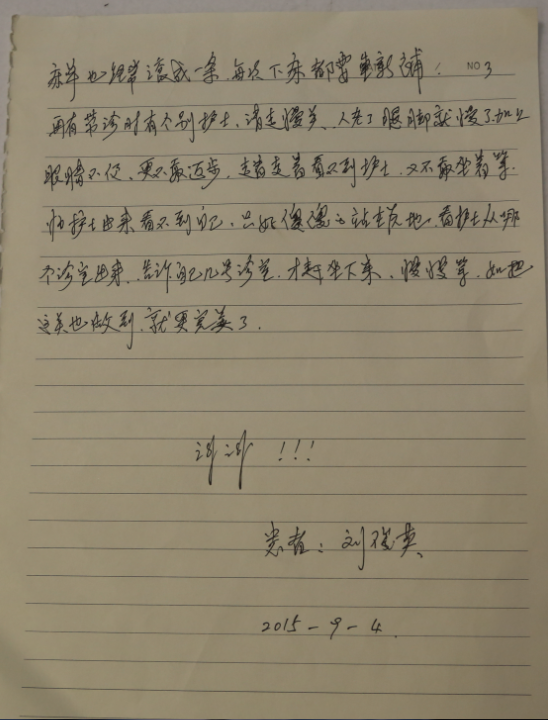 床单也经常滚成一条，每次下床都要重新铺！ NO 3
再有带诊时有个别护士，请走慢关、人老了腿脚就慢了，加上
眼睛不便、更不敢迈步，走着走着看不到护士，又不敢坐着等，
怕护士出来看不到自己，只好傻傻的站在原地，看护士从哪
个诊室出来，告诉自己几号诊室，才敢坐下来，慢慢等，如把
这关也做到，就更完美了。
谢谢！！！
患者：刘俊英、
2015-9-4.